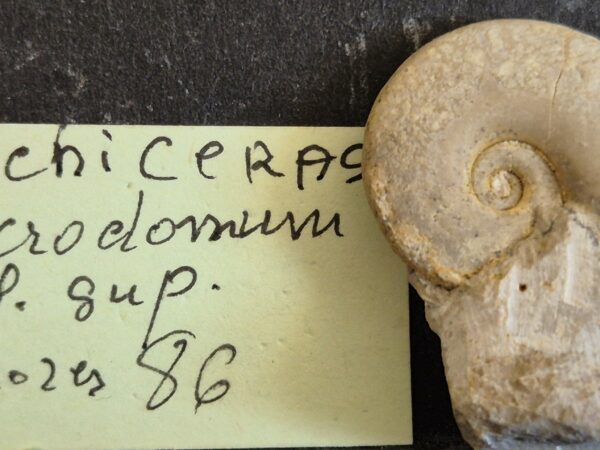 chiCeRAS
crodomum
l. sup.
ozes 86